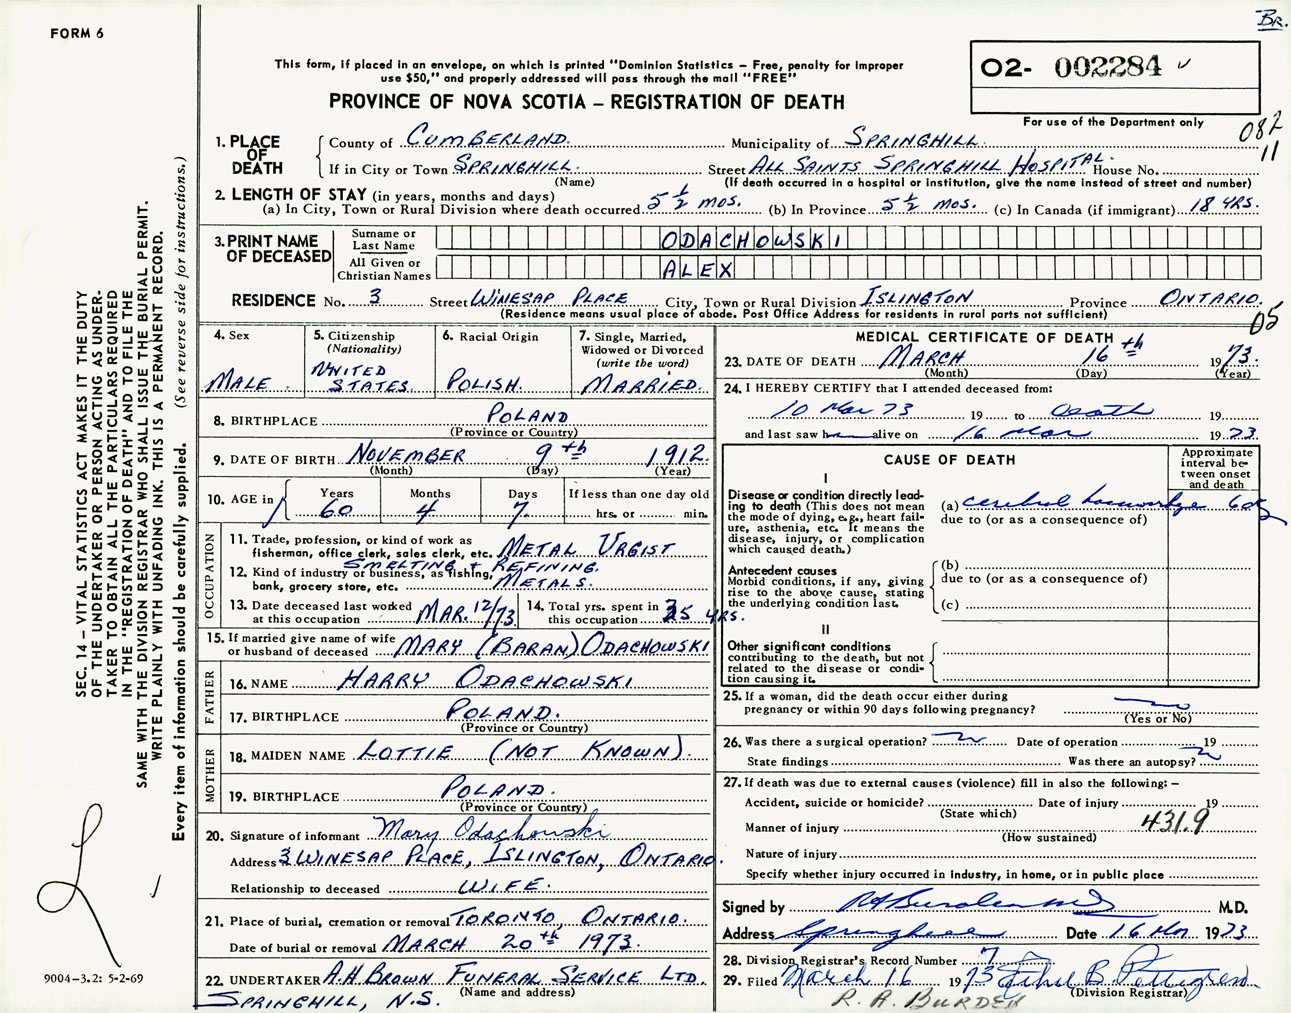 FORM 6
BR.
This form, if placed in an envelope, on which is printed "Dominion Statistics – Free, penalty for improper
use $50," and properly addressed will pass through the mail "FREE"
PROVINCE OF NOVA SCOTIA – REGISTRATION OF DEATH
02- 002284
For use of the Department only
082
11
1. PLACE OF DEATH
County of CUMBERLAND. Municipality of SPRINGHILL.
If in City or Town SPRINGHILL. Street ALL SAINTS SPRINGHILL HOSPITAL. House No.
(Name) (If death occurred in a hospital or institution, give the name instead of street and number)
2. LENGTH OF STAY (in years, months and days)
(a) In City, Town or Rural Division where death occurred. 5 1/2 MOS. (b) In Province 5 1/2 MOS. (c) In Canada (if immigrant) 18 YRS.
3. PRINT NAME OF DECEASED
Surname or Last Name ODACHOWSKI
All Given or Christian Names ALEX
RESIDENCE No. 3 Street WINESAP PLACE City, Town or Rural Division ISLINGTON Province ONTARIO.
(Residence means usual place of abode. Post Office Address for residents in rural parts not sufficient)
05
4. Sex
MALE
5. Citizenship (Nationality)
UNITED STATES
6. Racial Origin
POLISH.
7. Single, Married, Widowed or Divorced (write the word)
MARRIED.
8. BIRTHPLACE POLAND
(Province or Country)
9. DATE OF BIRTH NOVEMBER 9th 1912.
(Month) (Day) (Year)
10. AGE in Years 60 Months 4 Days 7. If less than one day old hrs. or min.
OCCUPATION
11. Trade, profession, or kind of work as
fisherman, office clerk, sales clerk, etc. METAL URGIST
12. Kind of industry or business, as fishing,
bank, grocery store, etc. SMELTING + REFINING METALS.
13. Date deceased last worked
at this occupation MAR. 12/73
14. Total yrs. spent in
this occupation 35 YRS.
15. If married give name of wife
or husband of deceased MARY (BARAN) ODACHOWSKI
FATHER
16. NAME HARRY ODACHOWSKI
17. BIRTHPLACE POLAND.
(Province or Country)
MOTHER
18. MAIDEN NAME LOTTIE (NOT KNOWN).
19. BIRTHPLACE POLAND.
(Province or Country)
20. Signature of informant Mary Odachowski
Address 3 WINESAP PLACE, ISLINGTON, ONTARIO.
Relationship to deceased WIFE.
21. Place of burial, cremation or removal TORONTO, ONTARIO.
Date of burial or removal MARCH 20th 1973.
22. UNDERTAKER A.H. BROWN FUNERAL SERVICE LTD.
(Name and address)
SPRINGHILL, N.S.
MEDICAL CERTIFICATE OF DEATH
23. DATE OF DEATH MARCH 16th 1973.
(Month) (Day) (Year)
24. I HEREBY CERTIFY that I attended deceased from:
10 Mar 73 19 to death 19
and last saw h alive on 16 Mar 1973.
CAUSE OF DEATH
Approximate interval between onset and death
I
Disease or condition directly lead-
ing to death (This does not mean
the mode of dying, e.g., heart fail-
ure, asthenia, etc. It means the
disease, injury, or complication
which caused death.)
(a) cerebral hemorrhage
due to (or as a consequence of)
Antecedent causes
Morbid conditions, if any, giving
rise to the above cause, stating
the underlying condition last.
(b)
due to (or as a consequence of)
(c)
II
Other significant conditions
contributing to the death, but not
related to the disease or condi-
tion causing it.
25. If a woman, did the death occur either during
pregnancy or within 90 days following pregnancy?
(Yes or No)
26. Was there a surgical operation? Date of operation 19
State findings Was there an autopsy?
27. If death was due to external causes (violence) fill in also the following: –
Accident, suicide or homicide? Date of injury 19
(State which)
Manner of injury 431.9
(How sustained)
Nature of injury
Specify whether injury occurred in industry, in home, or in public place
Signed by M.D.
Address Springhill Date 16 Mar 1973
28. Division Registrar's Record Number 7
29. Filed March 16 1973 Ethel B. Pettigrew
(Division Registrar)
R. A. BURDEN
SEC. 14 – VITAL STATISTICS ACT MAKES IT THE DUTY
OF THE UNDERTAKER OR PERSON ACTING AS UNDER-
TAKER TO OBTAIN ALL THE PARTICULARS REQUIRED
IN THE "REGISTRATION OF DEATH" AND TO FILE THE
SAME WITH THE DIVISION REGISTRAR WHO SHALL ISSUE THE BURIAL PERMIT.
WRITE PLAINLY WITH UNFADING INK. THIS IS A PERMANENT RECORD.
Every item of information should be carefully supplied. (See reverse side for instructions.)
9004-3.2: 5-2-69